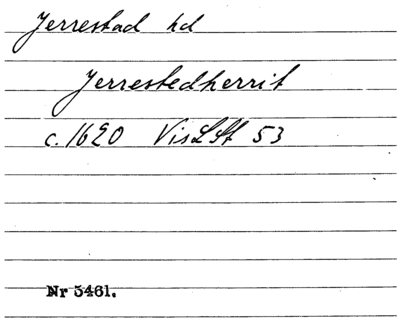 Jerrestad hd
Jerrestedherrit
c. 1620 VisLSt 53
Nr 5461.